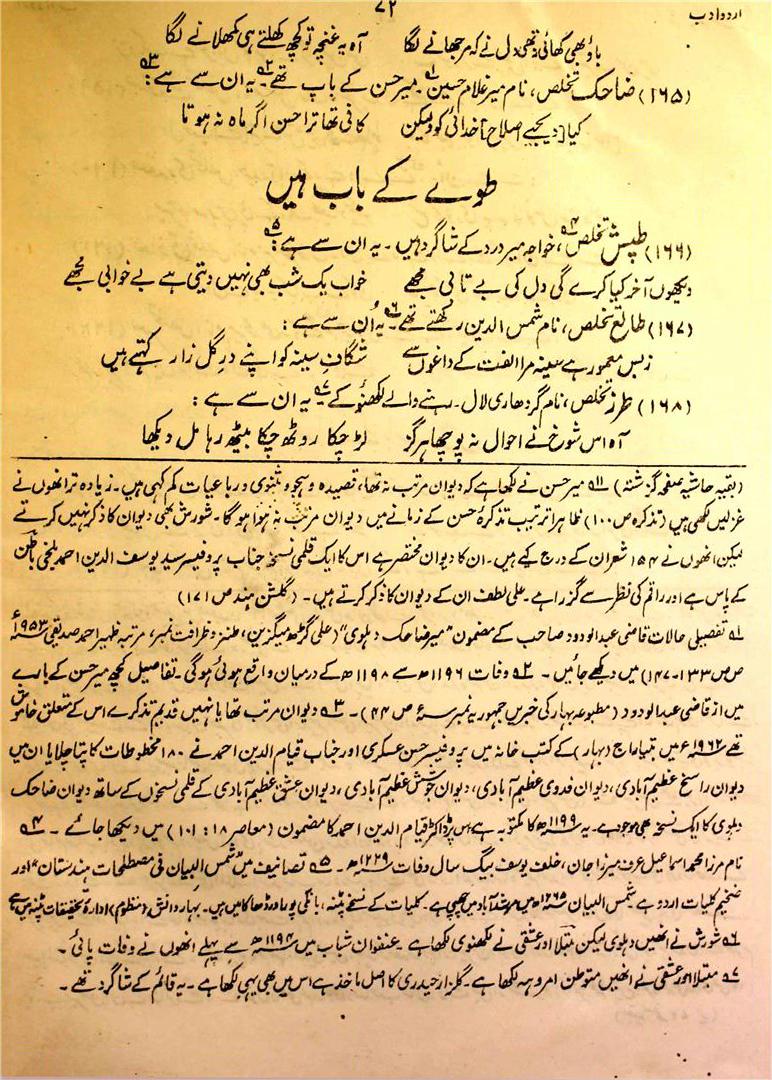 اردو ادب
۷۲
باؤ بھی کھائی نہ تھی دل نے کہ مرجھانے لگا      آہ یہ غنچہ تو کچھ کھلتے ہی کمھلانے لگا
(۱۶۵) ضاحک تخلص، نام میر غلام حسین۵۱ میر حسن کے باپ تھے۔۵۲ یہ ان سے ہے۵۳:
کیا [دیجیے اصلاح] خدائی کو ولیکن      کافی تھا ترا حسن اگر ماہ نہ ہوتا
طوے کے باب میں
(۱۶۶) طپش تخلص۵۴، خواجہ میر درد کے شاگرد ہیں۔ یہ ان سے ہے۵۵:
دیکھوں آخر کیا کرے گی دل کی بے تابی مجھے      خواب یک شب بھی نہیں دیتی ہے بے خوابی مجھے
(۱۶۷) طالع تخلص، نام شمس الدین رکھتے تھے۔۵۶ یہ اُن سے ہے:
زبس معمور ہے سینہ مرا الفت کے داغوں سے      شگافِ سینہ کو اپنے درِ گل زار کہتے ہیں
(۱۶۸) طرز تخلص، نام گردھاری لال۔ رہنے والے لکھنؤ کے۔۵۷ یہ ان سے ہے:
آہ اس شوخ نے احوال نہ پوچھا ہرگز      لڑ چکا روٹھ چکا بیٹھ رہا مل دیکھا
(بقیہ حاشیہ صفحہ گزشتہ) ۵۱۱ میر حسن نے لکھا ہے کہ دیوان مرتب نہ تھا، قصیدہ و ہجو و مثنوی و رباعیات کم کہی ہیں۔ زیادہ تر انھوں نے
غزلیں لکھی ہیں (تذکرہ ص ۱۰۰) ظاہرا ترتیب تذکرۂ حسن کے زمانے میں دیوان مرتب نہ ہوا ہوگا۔ شورش بھی دیوان کا ذکر نہیں کرتے
لیکن انھوں نے ۱۵۴ شعر ان کے درج کیے ہیں۔ ان کا دیوان مختصر ہے اس کا ایک قلمی نسخہ جناب پروفیسر سید یوسف الدین احمد بلخی باطن
کے پاس ہے اور راقم کی نظر سے گزرا ہے۔ علی لطف ان کے دیوان کا ذکر کرتے ہیں۔ (گلشن ہند ص ۱۷۱)
۵۱ تفصیلی حالات قاضی عبدالودود صاحب کے مضمون "میر ضاحک دہلوی" (علی گڑھ میگزین، طنز و ظرافت نمبر، مرتبہ ظہیر احمد صدیقی ۱۹۵۳ء
ص ص ۱۳۳-۱۴۷) میں دیکھے جائیں۔ ۵۲ وفات ۱۱۹۶ھ سے ۱۱۹۸ھ کے درمیان واقع ہوئی ہوگی۔ تفاصیل کچھ میر حسن کے بارے
میں از قاضی عبدالودود (مطبوعہ بہار کی خبریں جمہوریہ نمبر ص ۴۴)۔ ۵۳ دیوان مرتب تھا یا نہیں قدیم تذکرے اس کے متعلق خاموش
تھے ۱۹۶۲ء میں بتیا راج (بہار) کے کتب خانہ میں پروفیسر حسن عسکری اور جناب قیام الدین احمد نے ۱۸۰ مخطوطات کا پتا چلایا ان میں
دیوان راسخ عظیم آبادی، دیوان فدوی عظیم آبادی، دیوان جوشش عظیم آبادی، دیوان عشق عظیم آبادی کے قلمی نسخوں کے ساتھ دیوان ضاحک
دہلوی کا ایک نسخہ بھی موجود ہے۔ یہ ۱۱۹۹ھ کا مکتوبہ ہے اس پر ڈاکٹر قیام الدین احمد کا مضمون (معاصر ۱۸: ۱۰۱) میں دیکھا جائے۔ ۵۴
نام مرزا محمد اسماعیل عرف میرزا جان، خلف یوسف بیگ سال وفات ۱۲۲۹ھ۔ ۵۵ تصانیف میں "شمس البیان فی مصطلحات ہندستان" اور
ضخیم کلیات اردو ہے شمس البیان ۱۲۶۵ھ میں مرشد آباد میں چھپی ہے۔ کلیات کے نسخے پٹنہ، بانکی پور اور ڈھاکا میں ہیں۔ بہار دانش (منظوم) ادارۂ تحقیقات پٹنہ میں ہے
۵۶ شورش نے انھیں دہلوی لیکن مبتلا اور عشقی نے لکھنوی لکھا ہے۔ عنفوان شباب میں ۱۱۹۴ھ سے پہلے انھوں نے وفات پائی۔
۵۷ مبتلا اور عشقی نے انھیں متوطن امروہہ لکھا ہے۔ گلزار حیدری کا اصل ماخذ ہے اس میں بھی یہی لکھا ہے۔ یہ قائم کے شاگرد تھے۔